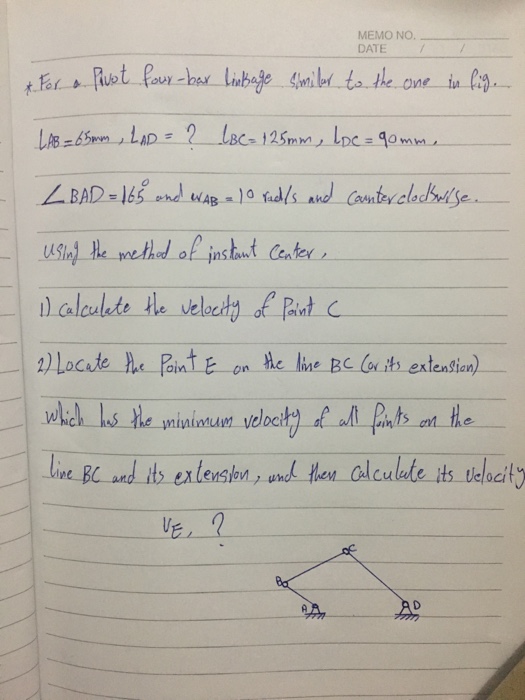 MEMO NO.
DATE / /
* For a Pivot four-bar linkage similar to the one in fig.
LAB = 65mm , LAD = ? LBC = 125mm , LDC = 90mm .
∠BAD = 165° and WAB = 10 rad/s and Counterclockwise.
Using the method of instant Center ,
1) Calculate the velocity of Point C
2) Locate the Point E on the line BC (or its extension)
which has the minimum velocity of all Points on the
line BC and its extension, and then Calculate its velocity
VE, ?
C
B
A D